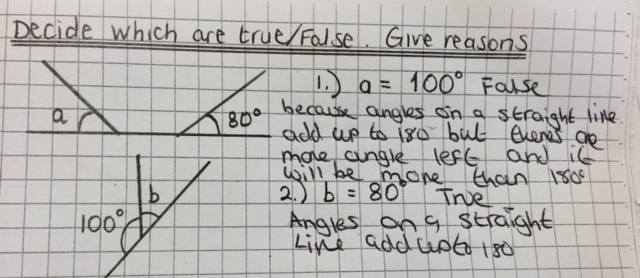 Decide which are true/False. Give reasons
1.) a = 100° False
because angles on a straight line
add up to 180 but theres one
more angle left and it
will be more than 180°
2.) b = 80° True
Angles on a straight
Line add up to 180
a
80°
b
100°